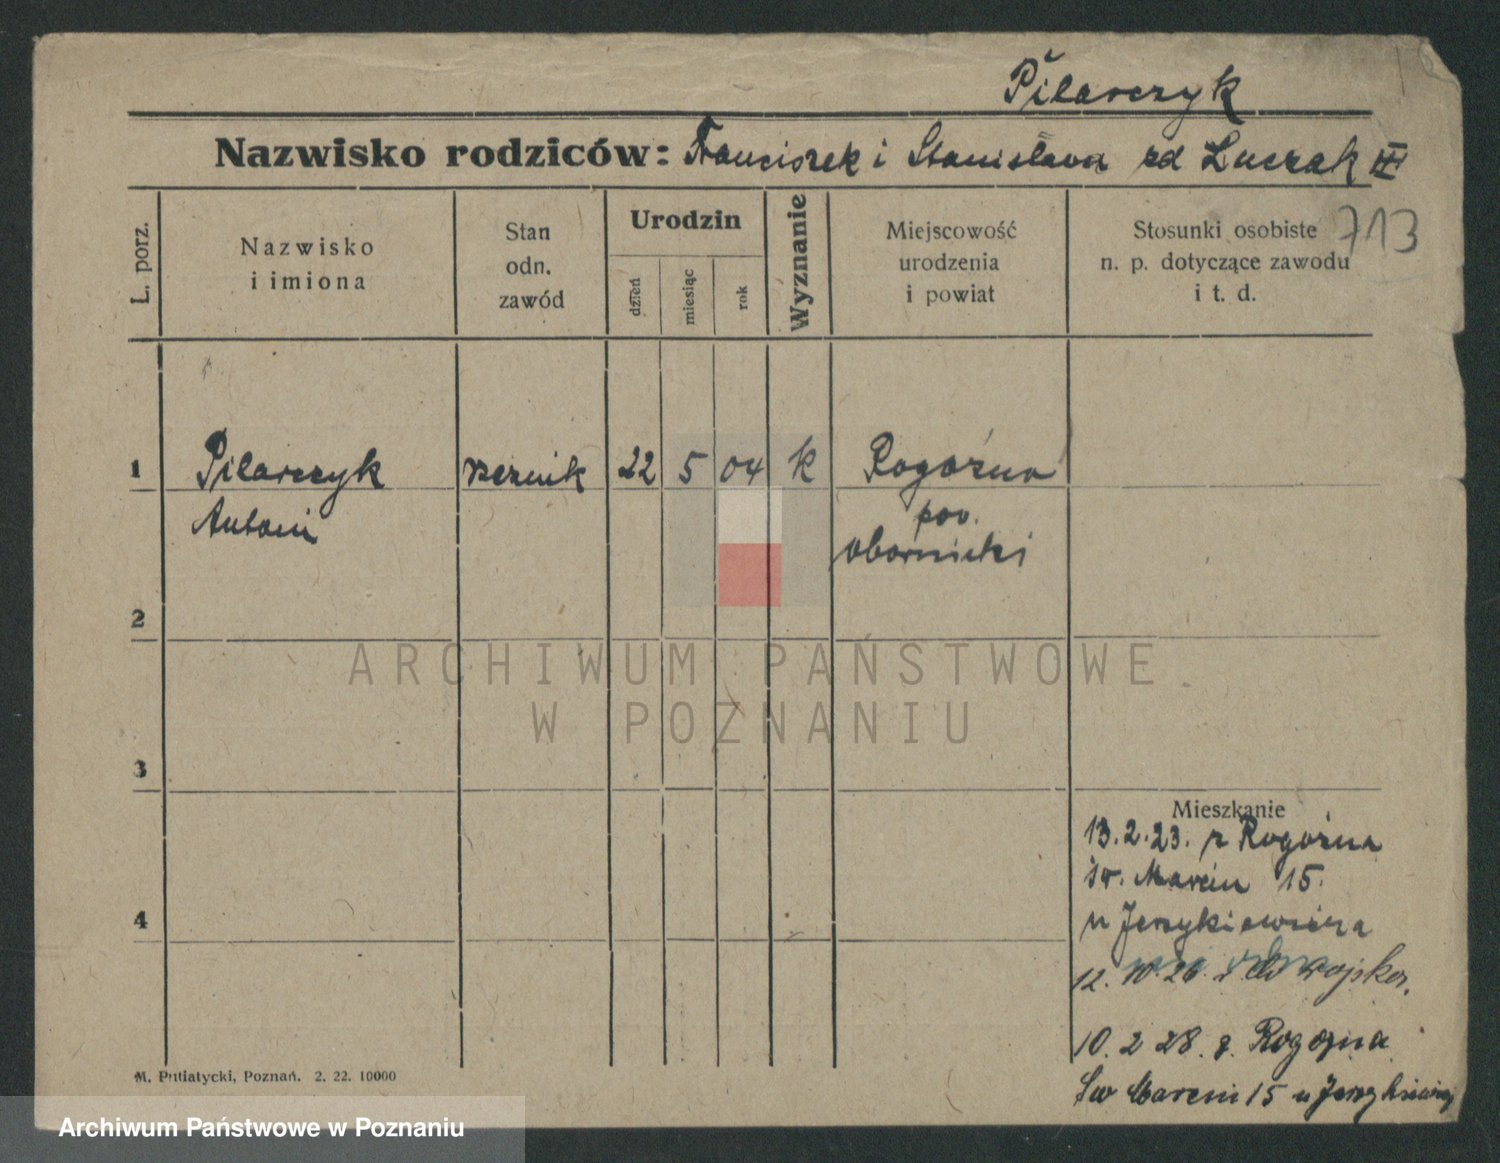 Pilarczyk
Nazwisko rodziców: Franciszek i Stanisława zd Luczak III
713
L. porz.
Nazwisko
i imiona
Stan
odn.
zawód
Urodzin
dzień
miesiąc
rok
Wyznanie
Miejscowość
urodzenia
i powiat
Stosunki osobiste
n. p. dotyczące zawodu
i t. d.
1
Pilarczyk rzeznik 22 5 04 k Rogoźna
Antoni
pow.
obornicki
2
ARCHIWUM PAŃSTWOWE
W POZNANIU
3
Mieszkanie
13.2.23. z Rogoźna
św. Marcin 15.
u Jerzykiewicza
4
12. 10. 26. do wojska.
10. 2 28. z. Rogozna
Św Marcin 15 u
M. Putiatycki, Poznań. 2. 22. 10000
Archiwum Państwowe w Poznaniu